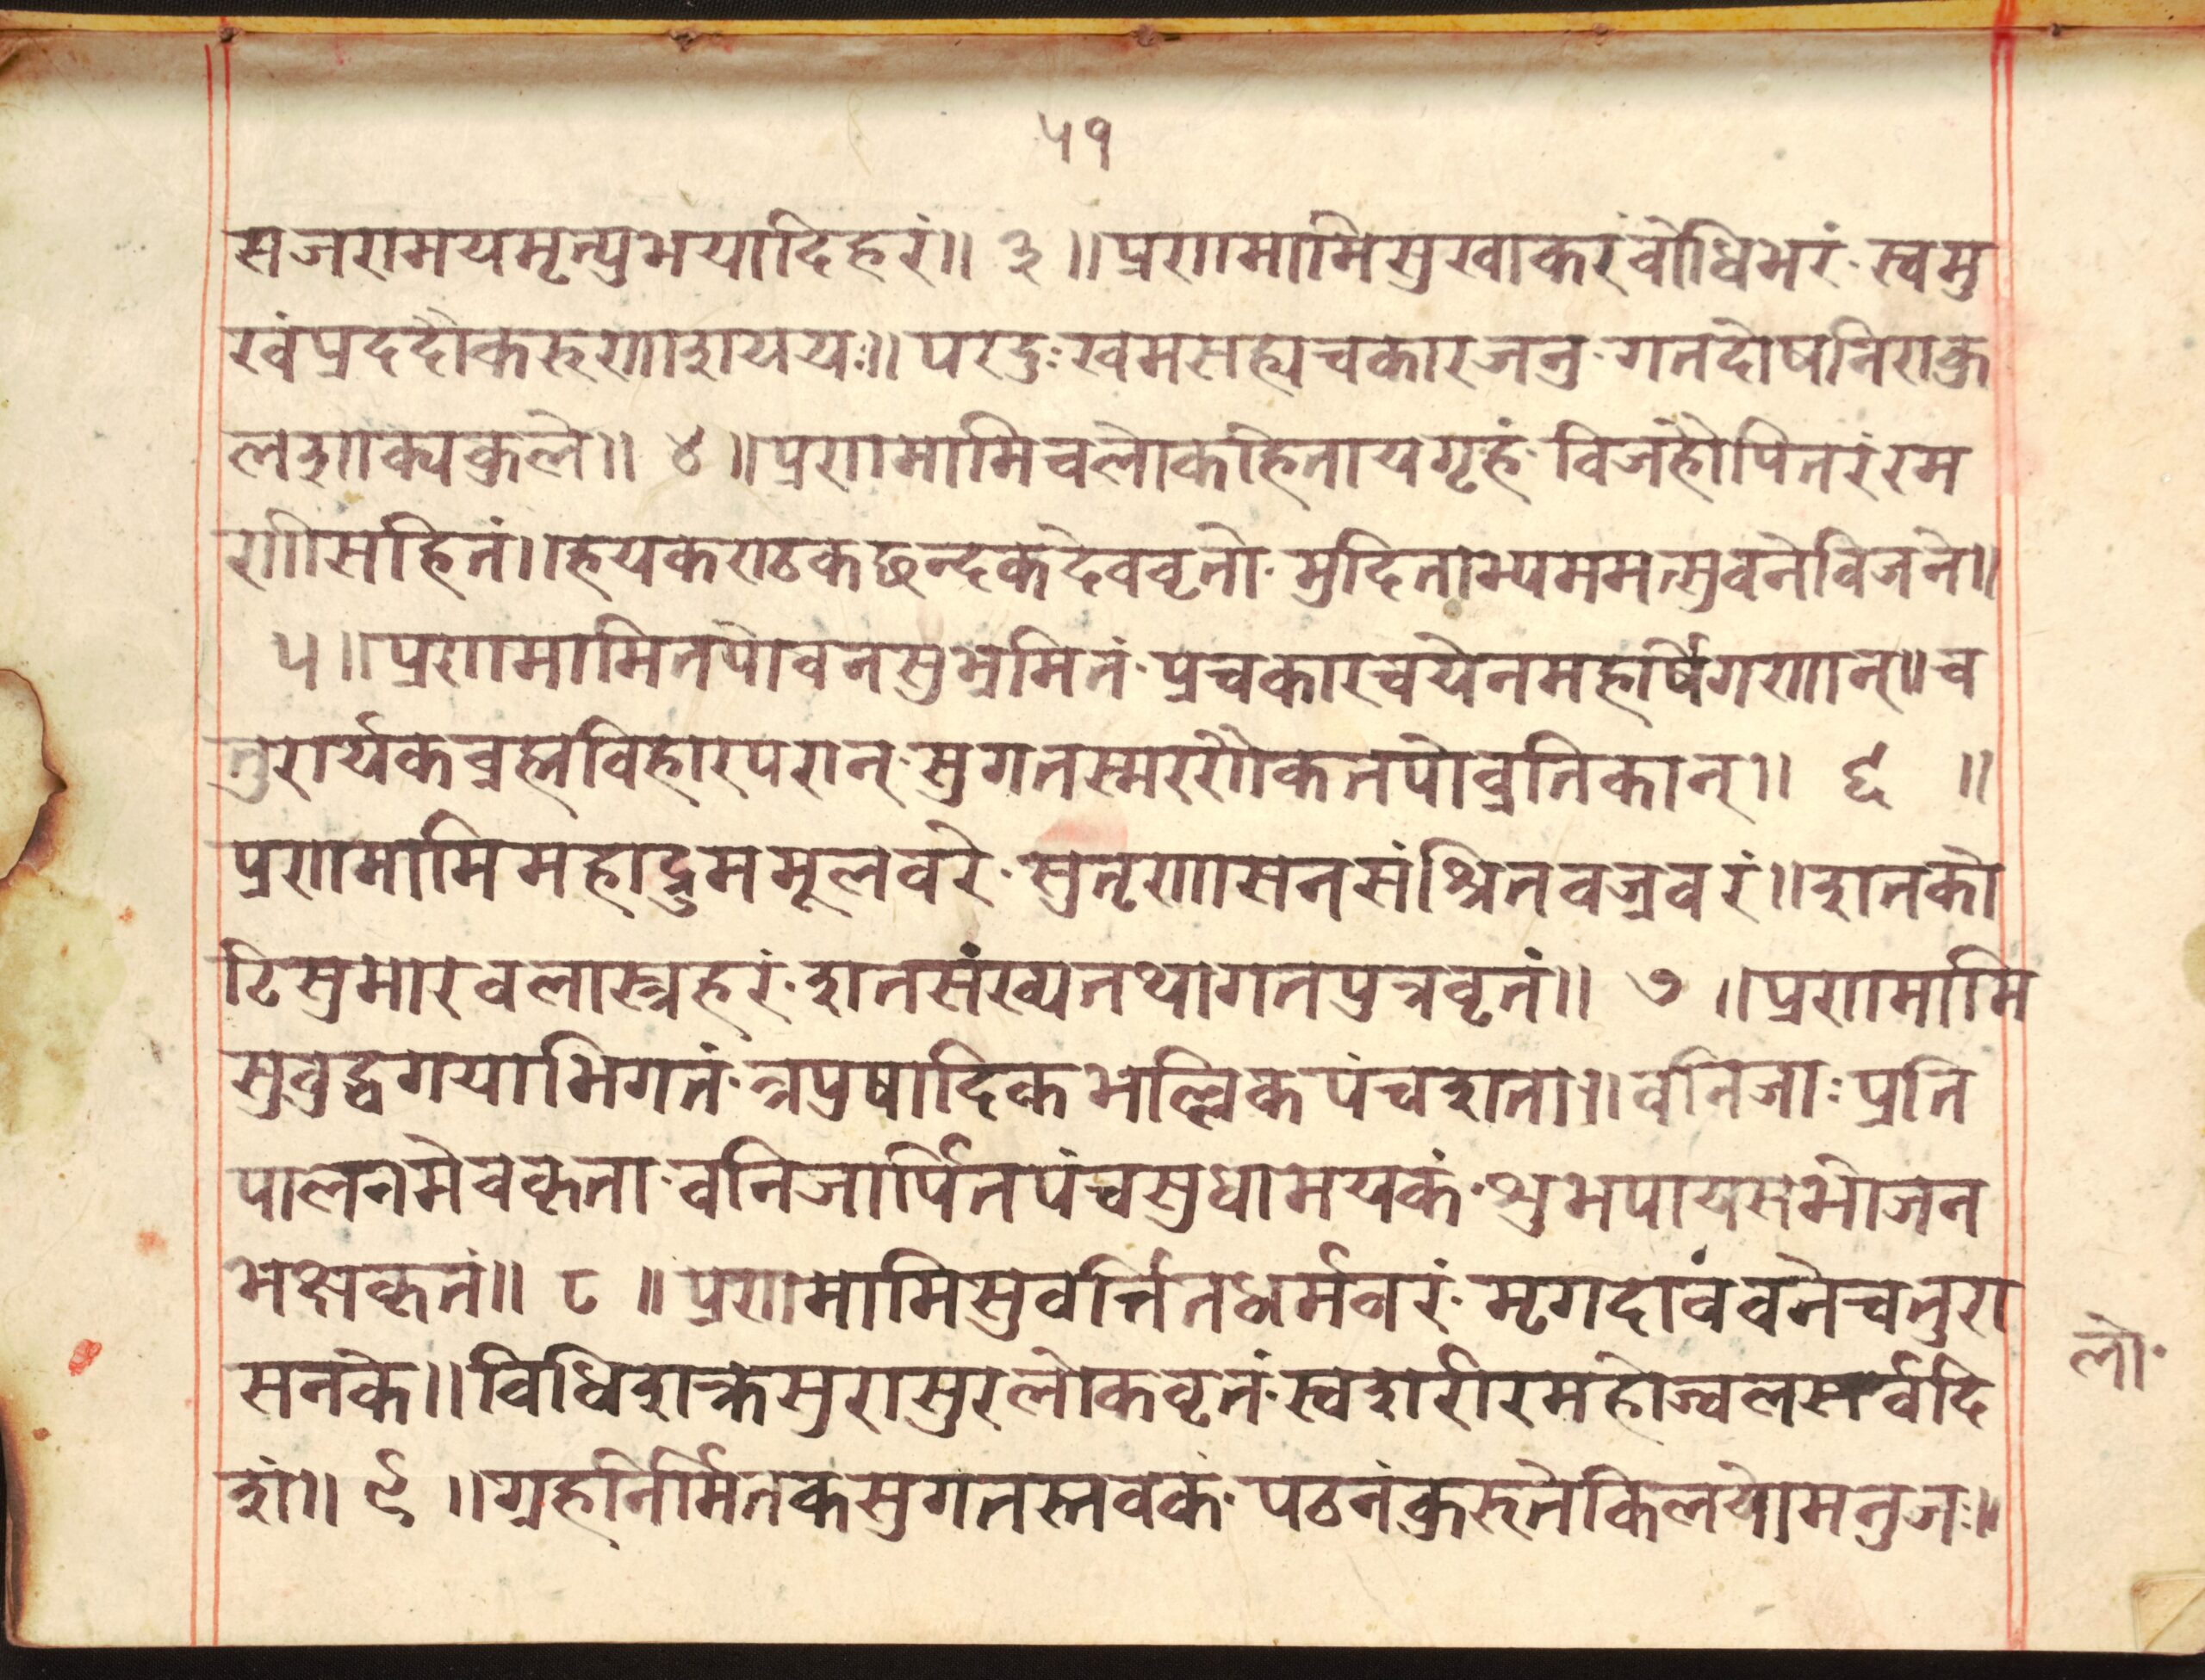 ५१
सजरामयमृत्युभयादिहरं॥ ३ ॥प्रणमामिसुखाकरंवोधिभरं·स्वमु
खंप्रददौकरुणाशययः॥परदुःखमसह्यचकारजनु·गतदोषनिराकु
लशाक्यकुले॥ ४ ॥प्रणमामिचलोकहितायगृहं·विजहौपितरंरम
णीसहितं॥हयकराठकछन्दकदेववृतो·मुदिताभ्यममत्सुवनेविजने॥
५॥प्रणमामितपोवनसुभ्रमितं·प्रचकारचयेनमहर्षिगणान्॥च
तुरार्यकब्रह्मविहारपरान्·सुगतस्मरणैकतपोव्रतिकान्॥ ६ ॥
प्रणमामिमहाद्रुममूलवरे·सुतृणासनसंश्रितवज्रवरं॥शतको
टिसुमारवलास्त्रहरं·शतसंख्यतथागतपुत्रवृतं॥ ७ ॥प्रणमामि
सुवुद्धगयाभिगतं·त्रपुषादिकभल्लिकपंचशता॥वनिजाःप्रति
पालनमेवकृता·वनिजार्पितपंचसुधामयकं·शुभपायसभोजन
भक्षकृतं॥ ८ ॥प्रणमामिसुवर्त्तितधर्मवरं·मृगदावंवनेचतुरा
सनके॥विधिशक्रसुरासुरलोकवृतं·स्वशरीरमहोज्वलसर्वदि
शं॥ ९ ॥ग्रहनिर्मितकंसुगतस्तवकं·पठनंकुरुतेकिलयोमनुजः॥
लो·